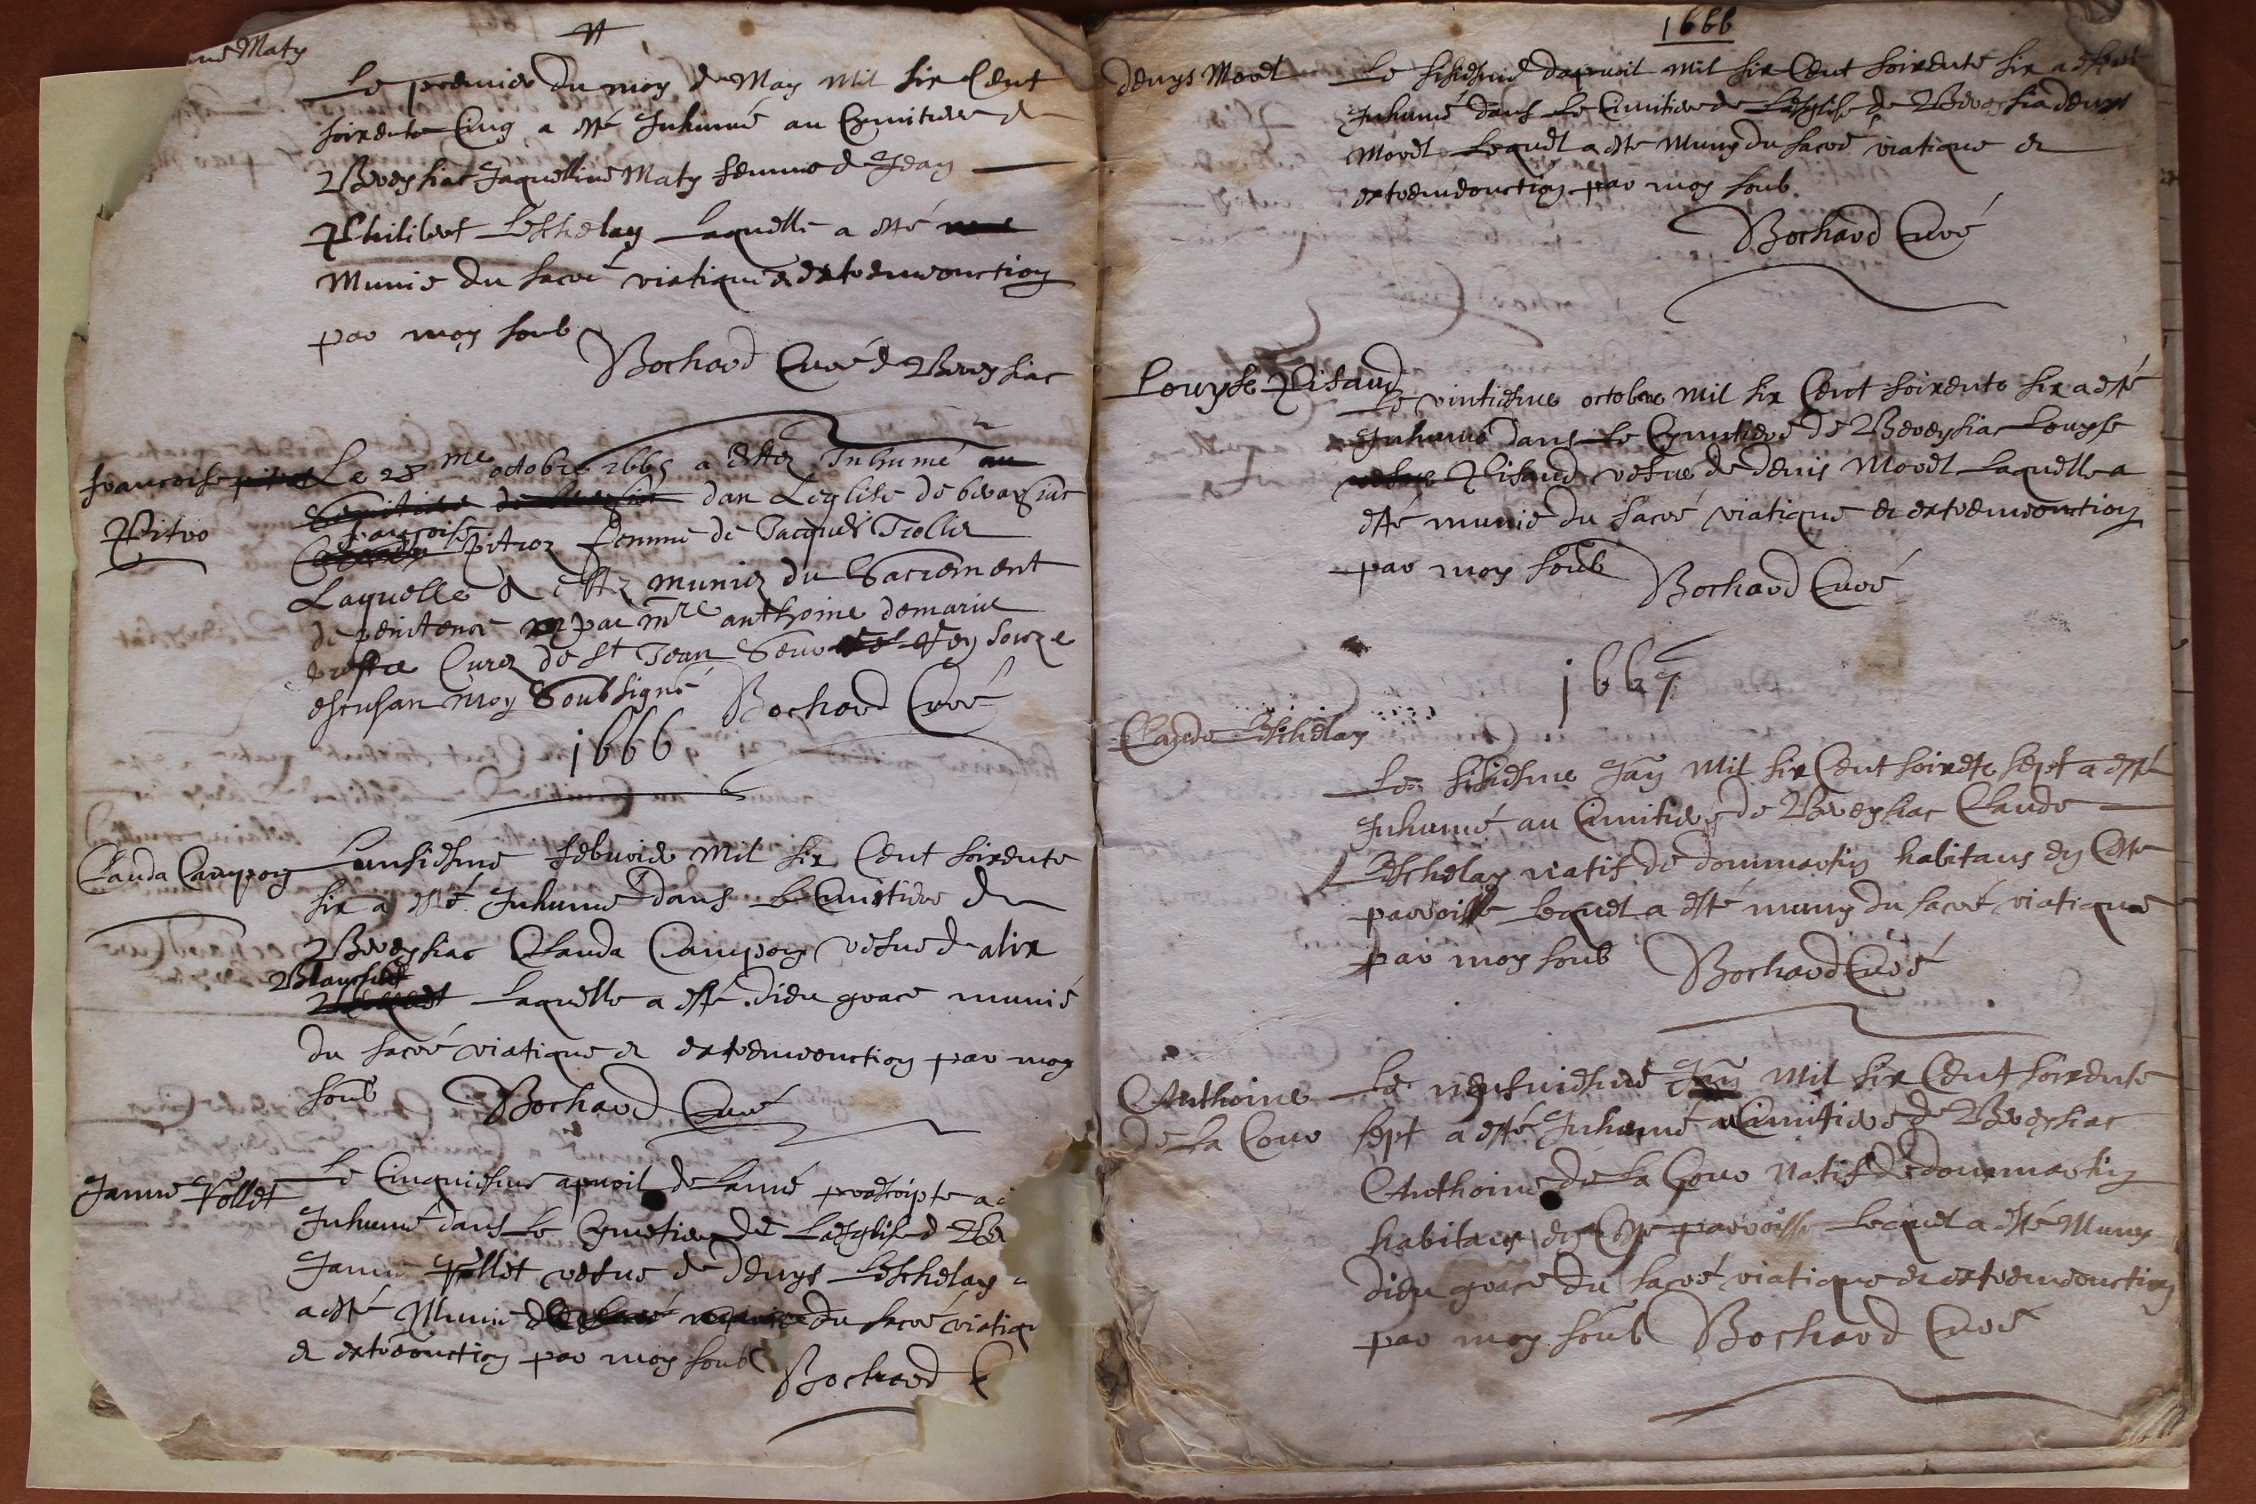 ne Maty
Le premier du moy de May mil six Cent
soixente Cinq a esté Inhumé au Cymitiere de
Breyssiac Jaquelline Maty femme de Jean
Philibert Leschelay Laquelle a esté
Munie du sacré viatique et extremeonction
par moy soub
Bochard Curé de Breyssiac
francoise
Pitro
Le 28 me octobre 1665 a ester Inhumé au
Cemitiere de dan Leglise de
francoise pitroz femme de Jacques Trolier
Laquelle a ester muniez du Sacrement
de penitence par mre anthoine demarie
prestre Curez de st Jean
moy Soubsigné Bochard Curé
1666
Clauda Campoy
Lunsiesme febvrier mil six Cent soixente
six a esté Inhumé dans le Cimitiere de
Breyssiac Clauda Campoy vefve de alix
Blanchet
Laquelle a esté dieu grace munie
du sacré viatique et extremeonction par moy
soub Bochard Curé
Janne Pollet
Le Cinquiesme apvril de Lanné predcripte a
Inhumé dans Le Cymetiere de Lesglise de
Janne Pollet vefve de denys Leschelay
a esté Munie du sacré viatiq
et extreonction par moy soub Bochard C
1666
denys Morel
Le sisiesme dapvril mil six Cent soixente six a esté
Inhumé dans Le Cimitiere de Lesglise de denys
Morel Lequel a esté muny du sacré viatique et
extremeonction par moy soub
Bochard Curé
Louyse Pisaud
Le vintiesme octobre mil six Cent soixente six a esté
Inhumé dans Le Cymitiere de Breyssiac Louyse
Pisaud vefve de denis Morel Laquelle a
esté munie du sacré viatique et extremeonction
par moy soub Bochard Curé
1667
Claude Leschelay
Le sisiesme Jan mil six Cent soixete sept a esté
Inhumé au Cimitiere de Breyssiac Claude
Leschelay natif de dommartin habitans en Cette
parroisse Lequel a esté muny du sacré viatique
par moy soub Bochard Curé
Anthoine
De La Cour
Le neufviesme Jan mil six Cent soixente
sept a esté Inhumé a Cimitiere de Breyssiac
Anthoine de La Cour Natif de dommartin
habitans en Cette parroisse Lequel a esté Muny
dieu grace du sacré viatique et extremeonction
par moy soub Bochard Curé